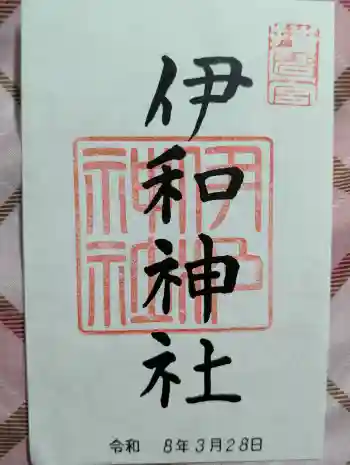 伊和神社
伊和
神社
令和 8年3月28日